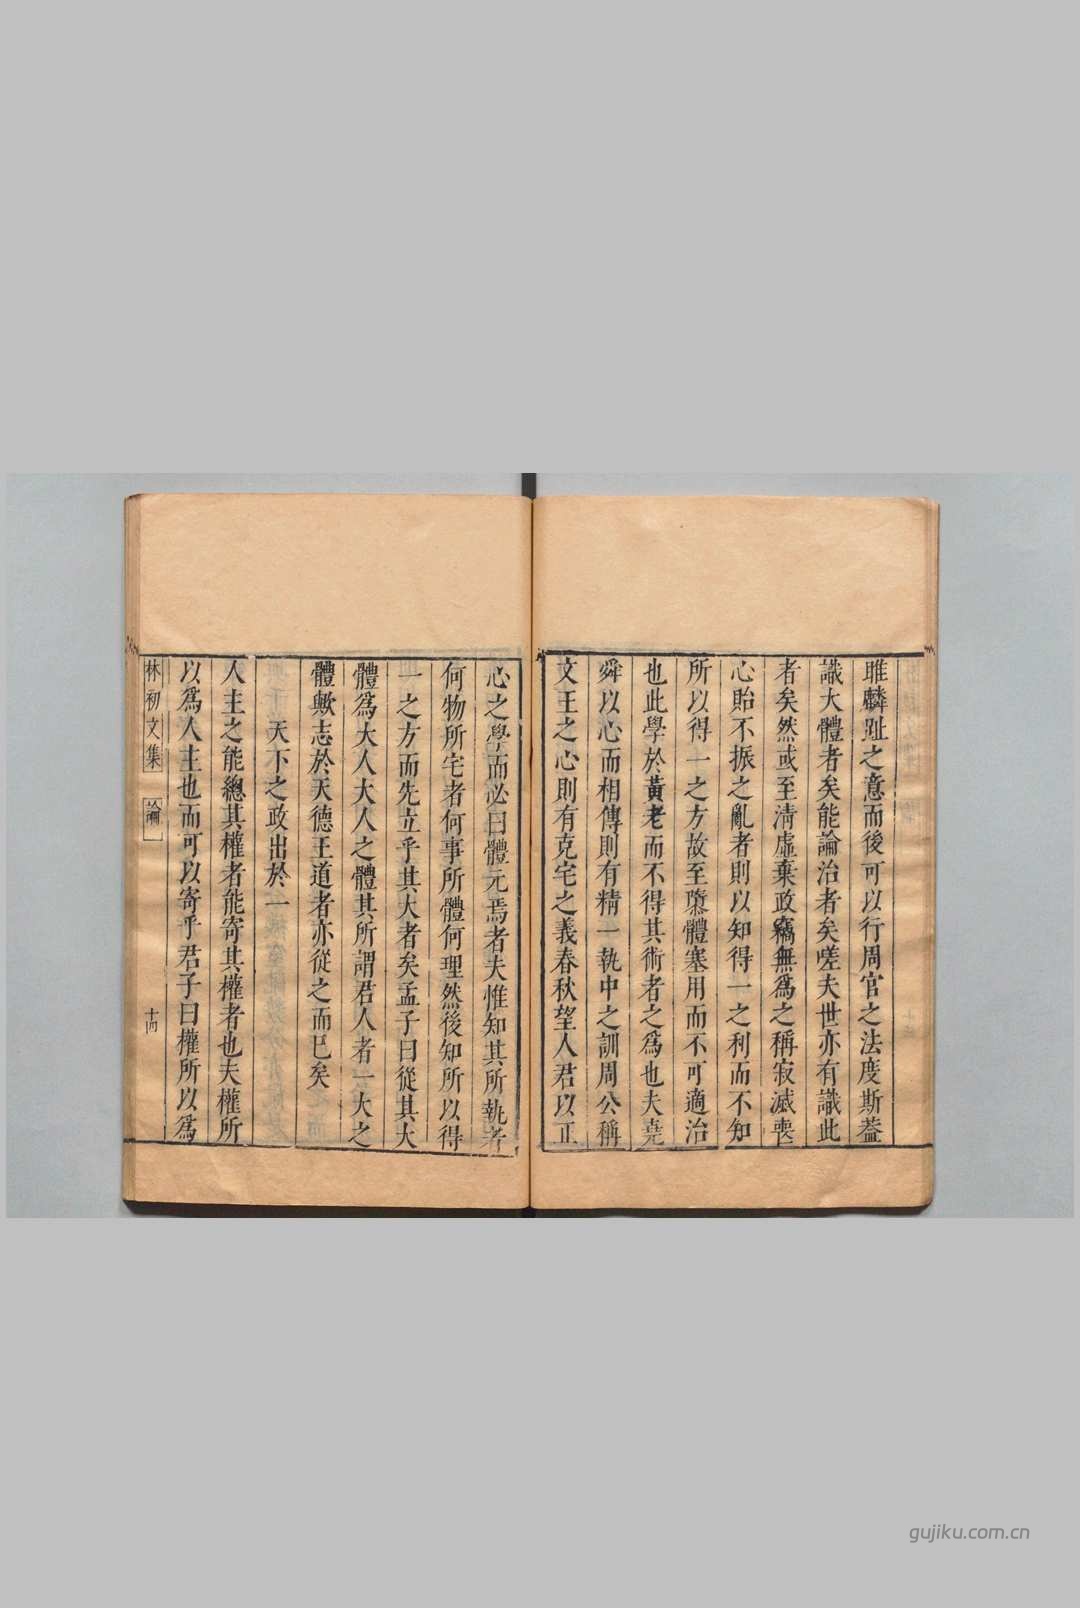 雎麟趾之意而後可以行周官之法度斯葢
識大體者矣能論治者矣嗟夫世亦有識此
者矣然或至清虛棄政竊無爲之稱寂滅喪
心貽不振之亂者則以知得一之利而不知
所以得一之方故至隳體塞用而不可適治
也此學於黃老而不得其術者之爲也夫堯
舜以心而相傳則有精一執中之訓周公稱
文王之心則有克宅之義春秋望人君以正
心之學而必曰體元焉者夫惟知其所執者
何物所宅者何事所體何理然後知所以得
一之方而先立乎其大者矣孟子曰從其大
體爲大人大人之體其所謂君人者一大之
體歟志於天德王道者亦從之而已矣
天下之政出於一
人主之能總其權者能寄其權者也夫權所
以爲人主也而可以寄乎君子曰權所以爲
林初文集 論 十四
gujiku.com.cn